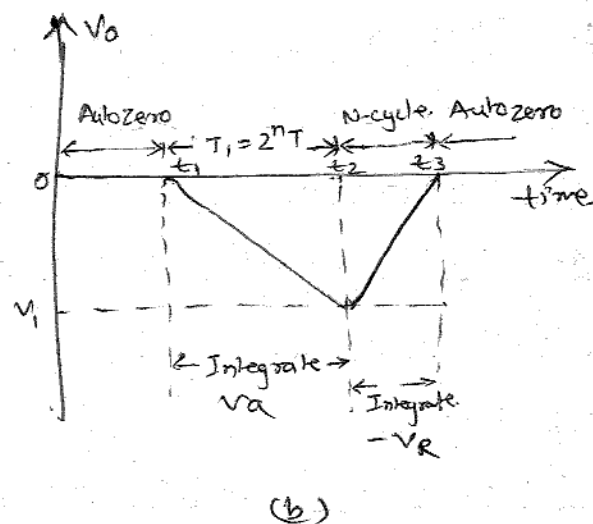 Vo
Autozero T₁ = 2ⁿT N-cycle. Autozero
t₁ t₂ t₃
0
time
V₁
Integrate
Va
Integrate
-VR
(b)